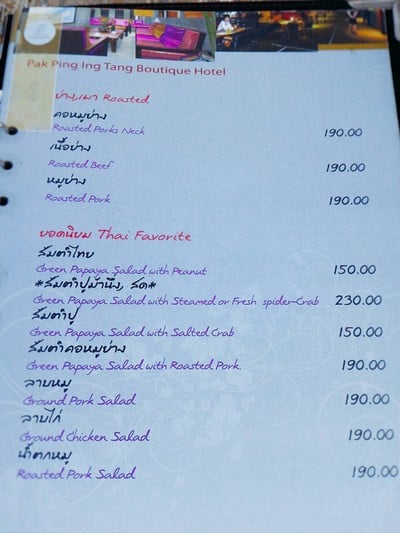 Pak Ping Ing Tang Boutique Hotel
ย่าง,เผา Roasted
คอหมูย่าง
Roasted Porks Neck 190.00
เนื้อย่าง
Roasted Beef 190.00
หมูย่าง
Roasted Pork 190.00
ยอดนิยม Thai Favorite
ส้มตำไทย
Green Papaya Salad with Peanut 150.00
*ส้มตำปูม้านึ่ง, สด*
Green Papaya Salad with Steamed or Fresh spider-Crab 230.00
ส้มตำปู
Green Papaya Salad with Salted Crab 150.00
ส้มตำคอหมูย่าง
Green Papaya Salad with Roasted Pork. 190.00
ลาบหมู
Ground Pork Salad 190.00
ลาบไก่
Ground Chicken Salad 190.00
น้ำตกหมู
Roasted Pork Salad 190.00